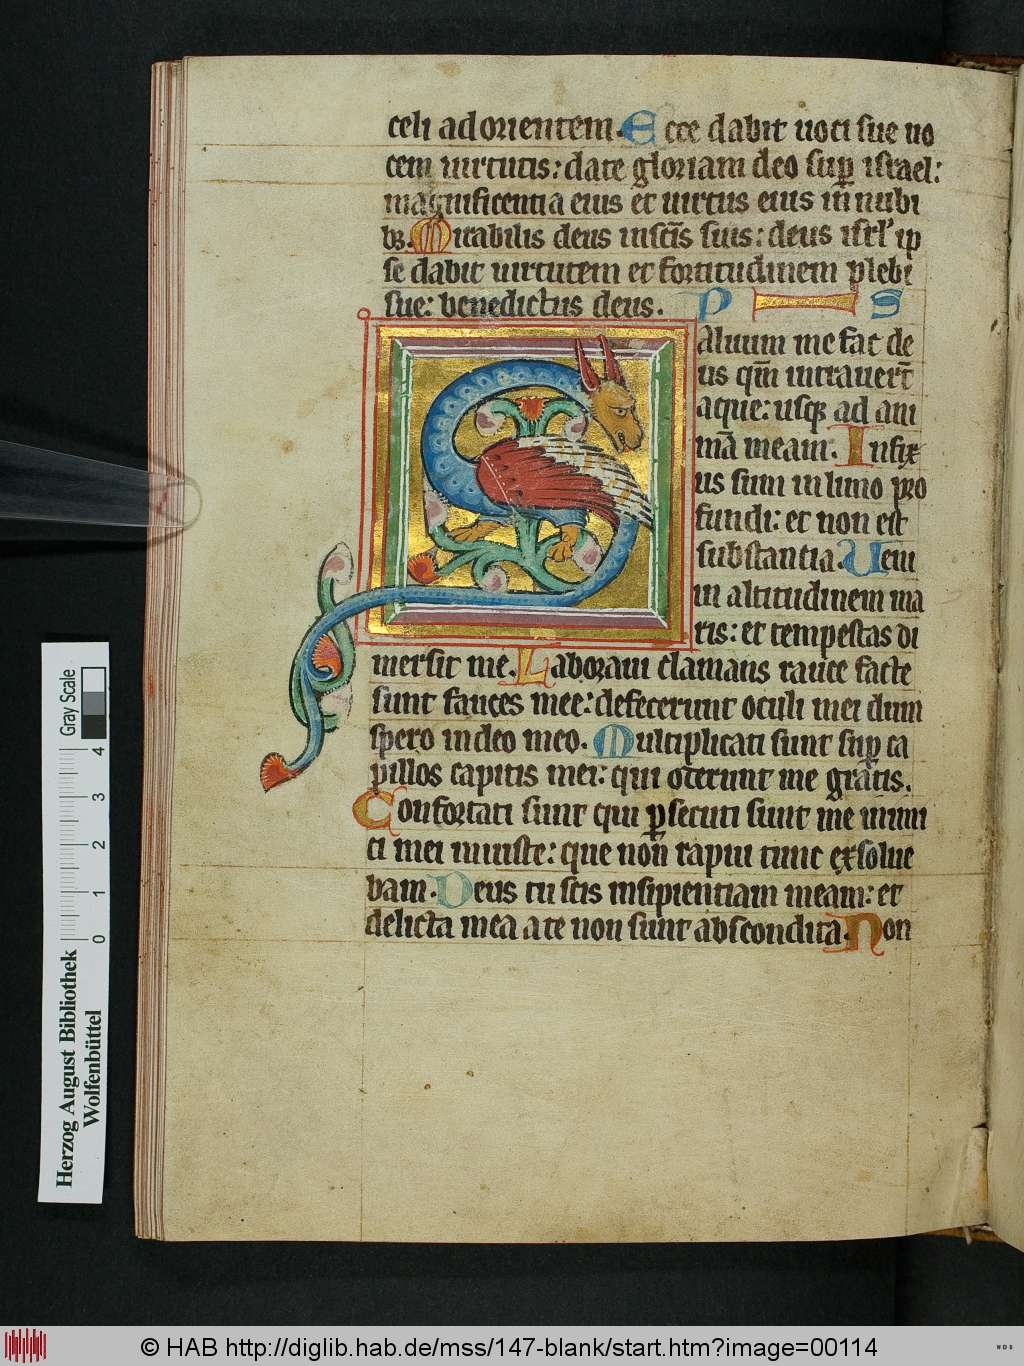 celi ad orientem. Ecce dabit uoci sue uo
cem uirtutis: date gloriam deo sup israel:
magnificentia eius et uirtus eius in nubi
bꝫ. Mirabilis deus in scīs suis: deus isrl' ip
se dabit uirtutem et fortitudinem plebi
sue: benedictus deus. P S
aluum me fac de
us qm̄ intrauert̄
aque: usqꝫ ad ani
mā meam. Infix
us sum in limo pro
fundi: et non est
substantia. Ueni
in altitudinem ma
ris: et tempestas di
mersit me. Laboraui clamans rauce facte
sunt fauces mee: defecerunt oculi mei dum
spero in deo meo. Multiplicati sunt sup ca
pillos capitis mei: qui oderunt me gratis.
Confortati sunt qui ꝑsecuti sunt me inimi
ci mei iniuste: que non rapui tunc exsolue
bam. Deus tu scis insipientiam meam: et
delicta mea a te non sunt abscondita. Non
Gray Scale
4
3
2
1
0
Herzog August Bibliothek
Wolfenbüttel
© HAB http://diglib.hab.de/mss/147-blank/start.htm?image=00114